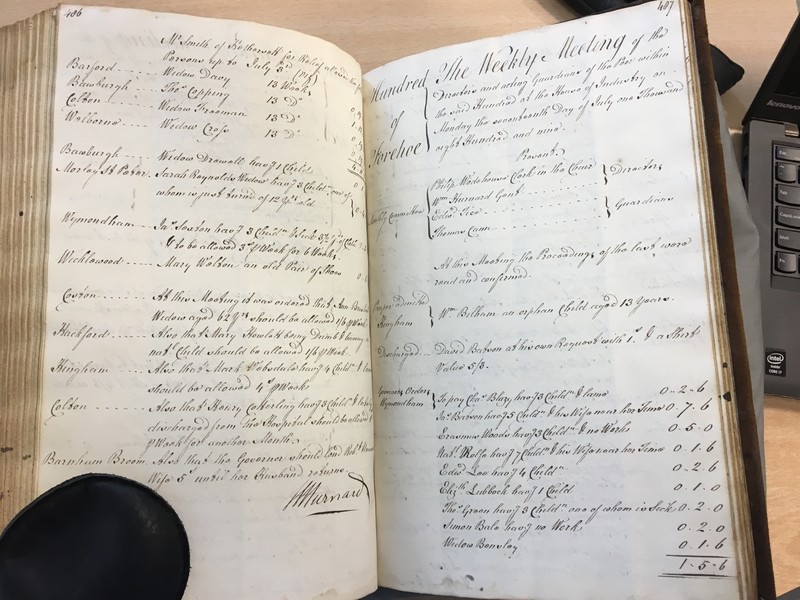 486
Mr. Smith of Kelborwell for Relief allowed the
Persons up to July 3rd
Barford Widow Davy 13 Weeks
Bawburgh Thos. Copping 13 Do
Colton Widow Freeman 13 Do
Welborne Widow Cross 13 Do
Bawburgh Widow havg 1 Child
Morley St Peter Sarah Reynolds Widow havg 3 Childn one of
whom is just turned of 12 Yrs old
Wymondham Jas. Sexton havg 3 Childn & Sick
to be allowed p Week for 6 Weeks
Wicklewood Mary Wolton an old Pair of Shoes
Coston At this Meeting it was ordered that Ann
Widow aged 62 Yrs should be allowed 1/6 p Week
Hackford Also that Mary Howlett being Dumb & having a
natl Child should be allowed 1/6 p Week
Hingham Also that Mark havg 4 Childn
should be allowed 4s p Week
Colton Also that Henry Cotterling havg 3 Childn &
discharged from the Hospital should be allowed
p Week for another Month
Barnham Broom Also that the Governor should lend Robt
Wife 5s until her Husband returns
Hurnard
487
Hundred of Forehoe
The Weekly Meeting of the
Directors and acting Guardians of the Poor within
the said Hundred at the House of Industry on
Monday the seventeenth Day of July one Thousand
eight Hundred and nine
Present
Philip Wodehouse Clerk in the Chair
Wm. Hurnard Gent
Directors
Weekly Committee
Edwd. Tice
Thomas Cann
Guardians
At this Meeting the Proceedings of the last were
read and confirmed.
Pauper admitted
Hingham
Wm. Belham an orphan Child aged 13 Years.
Discharged David Batson at his own Request with 1s & a Shirt
Value 5/3.
Governors Orders
Wymondham
To pay Chas. Blazy havg 3 Childn & lame 0-2-6
Jas. Barson havg 5 Childn & his Wife near her Time 0.7.6
Erasmus Woods havg 3 Childn & no Work 0.5.0
Natl. Rolfe havg 7 Childn & his Wife near her Time 0.1.6
Edwd. Law havg 4 Childn 0.2.6
Elizth Lubbock havg 1 Child 0.1.0
Thos. Green havg 3 Childn one of whom is Sick 0.2.0
Simon Bale havg no Work 0.2.0
Widow Bensley 0.1.6
1.5.6
lenovo
intel
inside
CORE i7